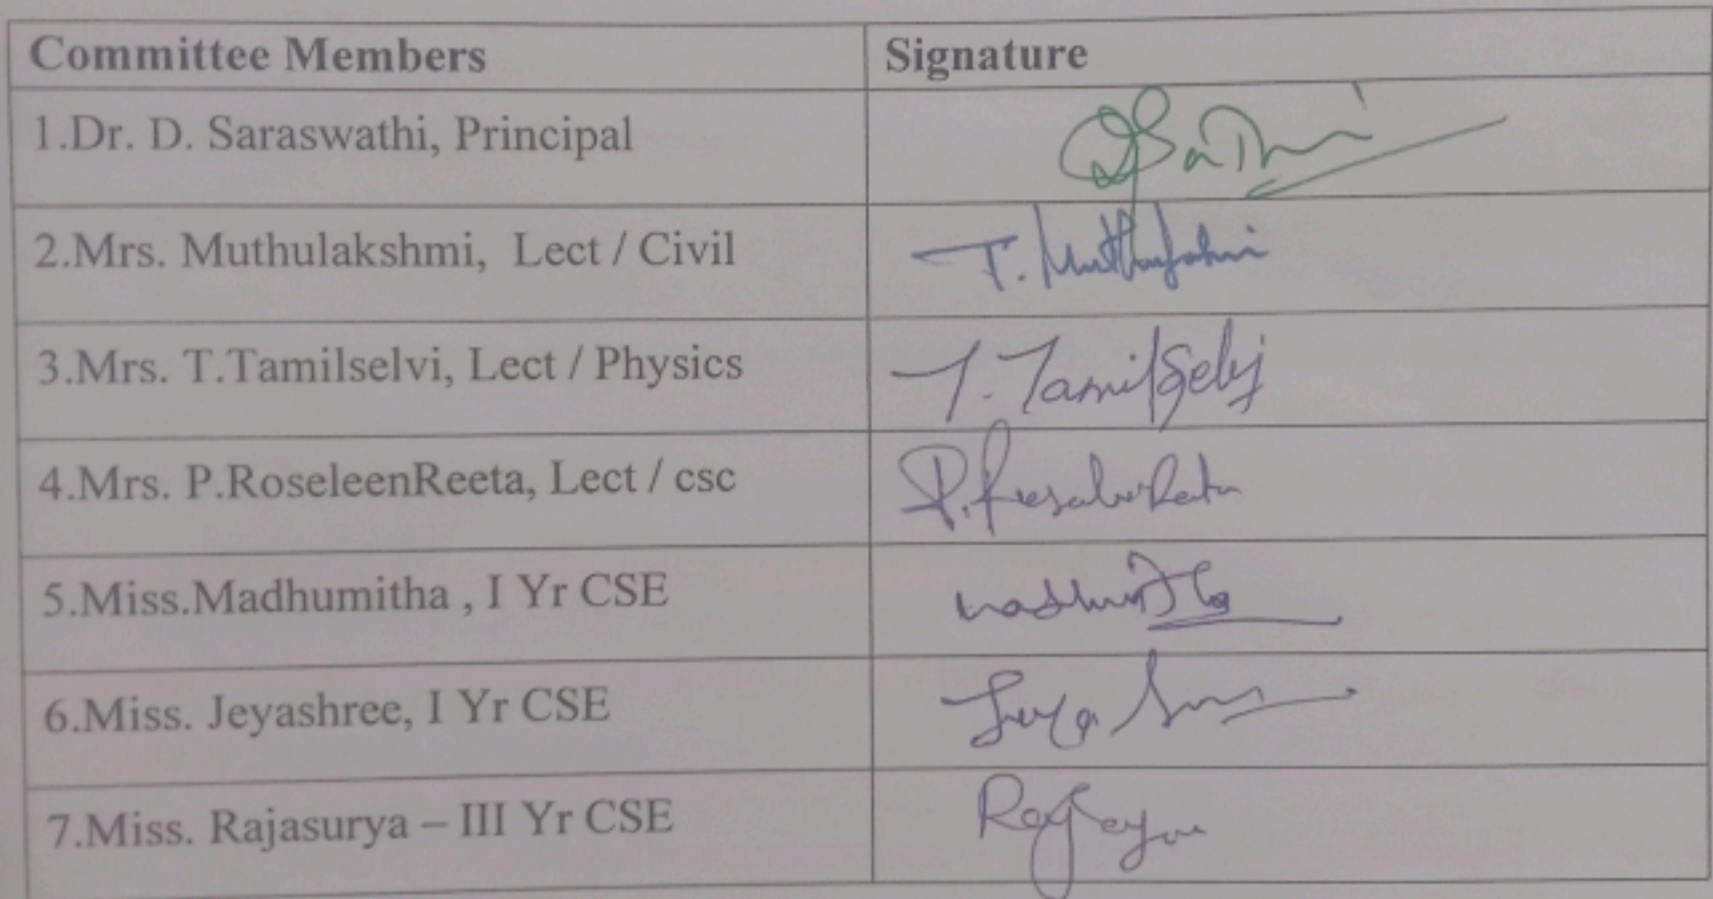 Committee Members Signature
1.Dr. D. Saraswathi, Principal
2.Mrs. Muthulakshmi, Lect / Civil T. Muthulakshmi
3.Mrs. T.Tamilselvi, Lect / Physics T. Tamilselvi
4.Mrs. P.RoseleenReeta, Lect / csc
5.Miss.Madhumitha , I Yr CSE
6.Miss. Jeyashree, I Yr CSE
7.Miss. Rajasurya – III Yr CSE